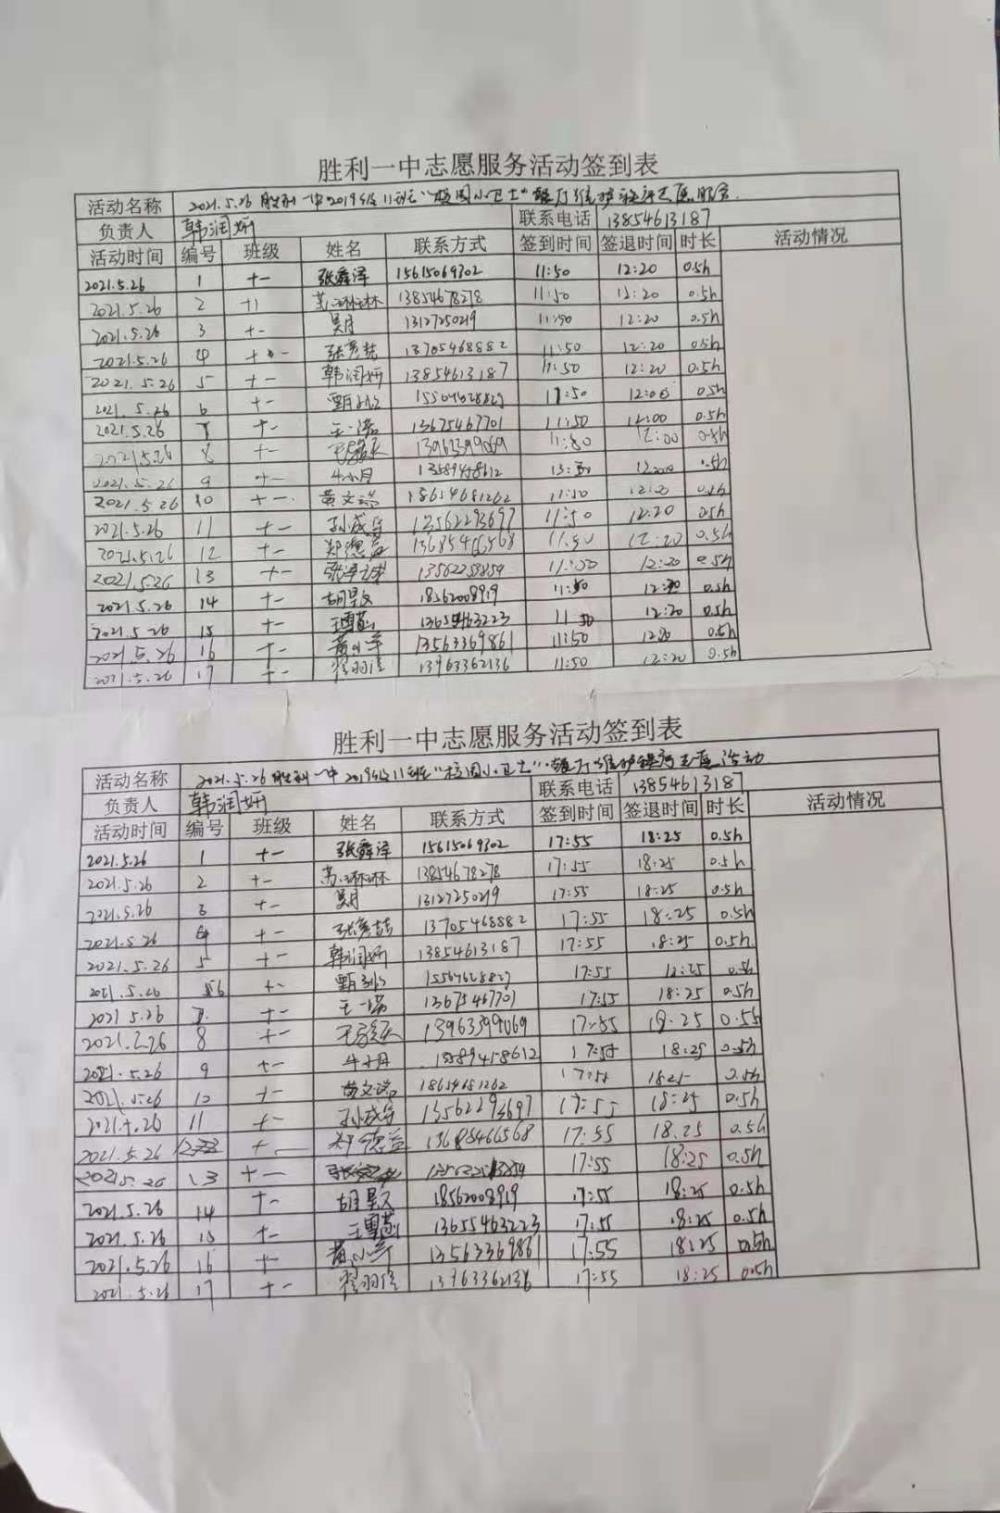 胜利一中志愿服务活动签到表
活动名称 2021.5.26 胜利一中2019级11班"校园小卫士"餐厅维护秩序志愿服务.
负责人 韩润妍 联系电话 13854613187
活动时间 编号 班级 姓名 联系方式 签到时间 签退时间 时长 活动情况
2021.5.26 1 十一 张舜泽 15615069302 11:50 12:20 0.5h
2021.5.26 2 十一 苏琳琳 13854678278 11:50 12:20 0.5h
2021.5.26 3 十一 吴月 13127250219 11:50 12:20 0.5h
2021.5.26 4 十一 张彦喆 13705468882 11:50 12:20 0.5h
2021.5.26 5 十一 韩润妍 13854613187 11:50 12:20 0.5h
2021.5.26 6 十一 甄 11:50 12:00 0.5h
2021.5.26 7 十一 王一诺 13675467701 11:50 12:00 0.5h
2021.5.26 8 十一 13963399069 12:00 0.5h
2021.5.26 9 十一 牛小丹 0.5h
2021.5.26 10 十一 黄文 18654681262 11:50 12:20 0.5h
2021.5.26 11 十一 孙成 13562293697 11:50 12:20 0.5h
2021.5.26 12 十一 郑德益 13685466568 11:50 12:20 0.5h
2021.5.26 13 十一 张 11:50 12:20 0.5h
2021.5.26 14 十一 胡昊 18562008919 11:50 12:20 0.5h
2021.5.26 15 十一 王 13655463223 11 50 12:20 0.5h
2021.5.26 16 十一 黄小 13563369861 11:50 12:20 0.5h
2021.5.26 17 十一 翟羽佳 13963362136 11:50 12:20 0.5h
胜利一中志愿服务活动签到表
活动名称 2021.5.26 胜利一中2019级11班"校园小卫士"餐厅维护秩序志愿活动
负责人 韩润妍 联系电话 13854613187
活动时间 编号 班级 姓名 联系方式 签到时间 签退时间 时长 活动情况
2021.5.26 1 十一 张舜泽 15615069302 17:55 18:25 0.5h
2021.5.26 2 十一 苏琳琳 13854678278 17:55 18:25 0.5h
2021.5.26 3 十一 吴月 13127250219 17:55 18:25 0.5h
2021.5.26 4 十一 张彦喆 13705468882 17:55 18:25 0.5h
2021.5.26 5 十一 韩润妍 13854613187 17:55 18:25 0.5h
2021.5.26 6 十一 甄 17:55 18:25 0.5h
2021.5.26 7 十一 王一诺 13675467701 17:55 18:25 0.5h
8 十一 13963399069 17:55 18:25 0.5h
2021.5.26 9 十一 牛小丹 17:55 18:25 0.5h
2021.5.26 10 十一 黄文 18654681262 17:55 18:25 0.5h
2021.5.26 11 十一 孙成 13562293697 17:55 18:25 0.5h
2021.5.26 12 十一 郑德益 13685466568 17:55 18:25 0.5h
2021.5.26 13 十一 17:55 18:25 0.5h
2021.5.26 14 十一 胡昊 18562008919 17:55 18:25 0.5h
2021.5.26 15 十一 王 13655463223 17:55 18:25 0.5h
2021.5.26 16 十一 黄小 13563369861 17:55 18:25 0.5h
2021.5.26 17 十一 翟羽佳 13963362136 17:55 18:25 0.5h